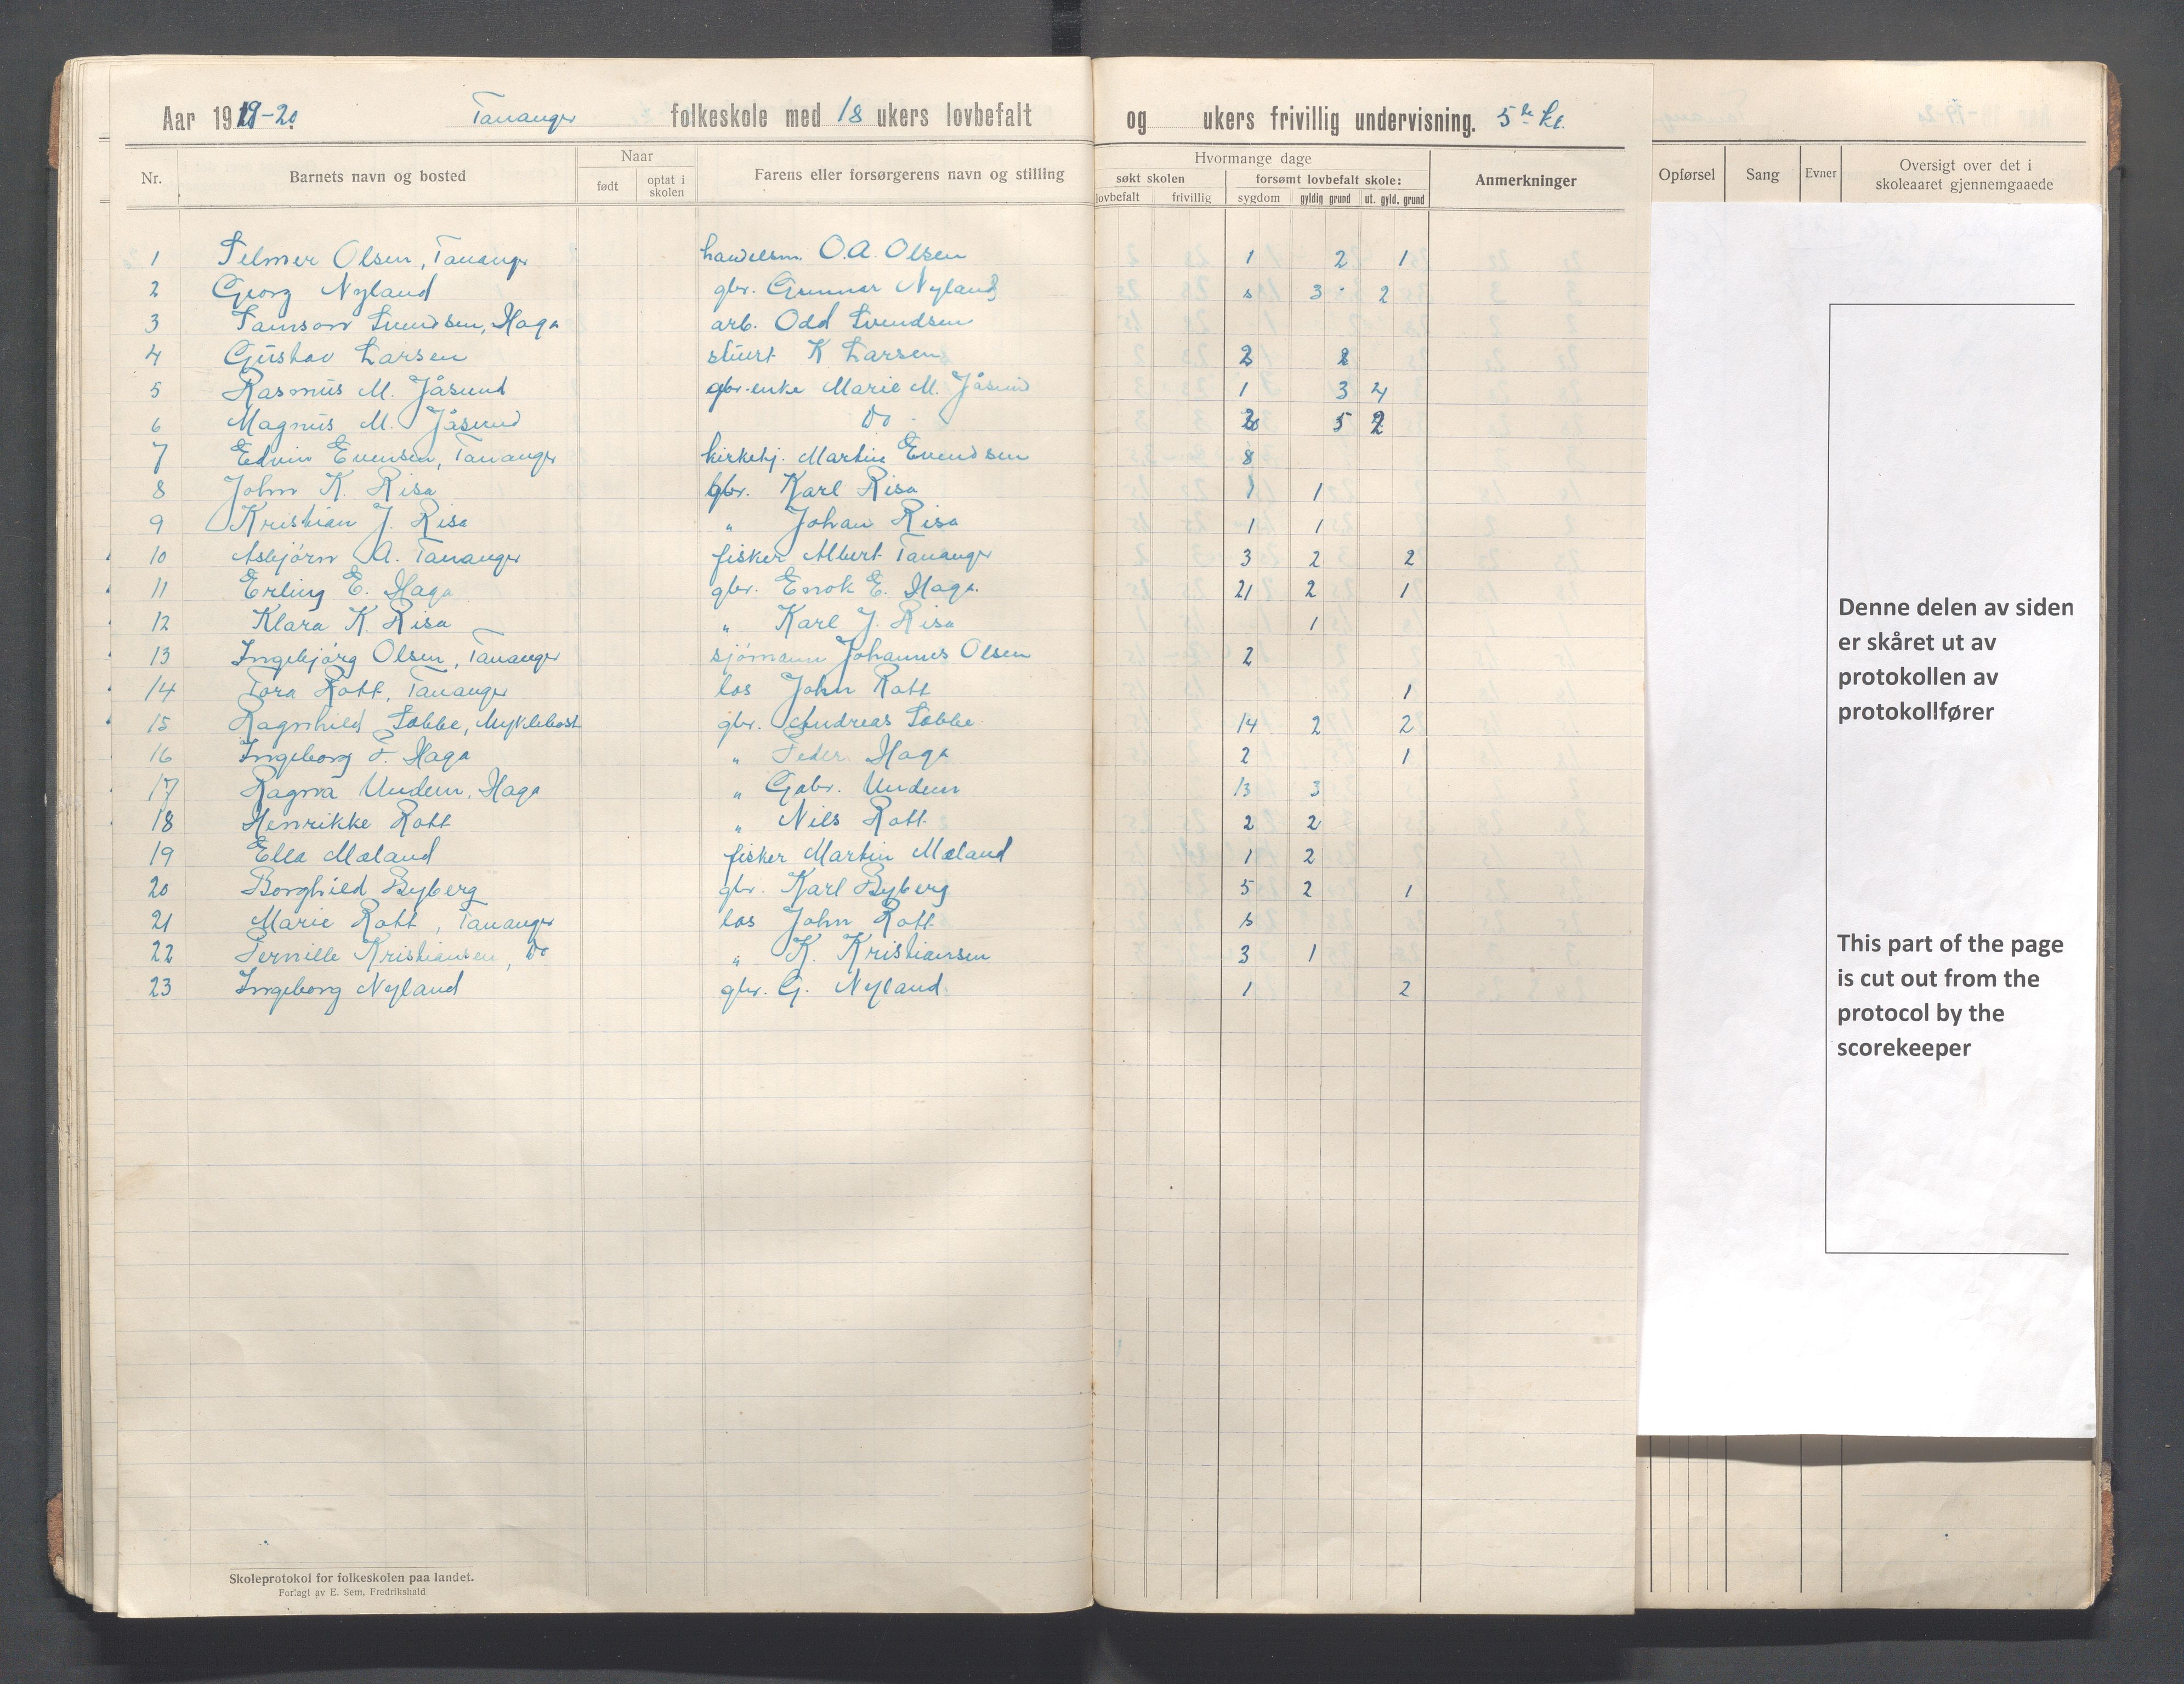 Aar 1919-20 Tananger folkeskole med 18 ukers lovbefalt og ukers frivillig undervisning. 5te kl.
Nr. Barnets navn og bosted Naar født optat i skolen Farens eller forsørgerens navn og stilling Hvormange dage søkt skolen lovbefalt frivillig forsømt lovbefalt skole: sygdom gyldig grund ut. gyld. grund Anmerkninger Opførsel Sang Evner Oversigt over det i skoleaaret gjennemgaaede
1 Selmer Olsen, Tananger handelsm. O.A. Olsen 1 2 1
2 Georg Nyland gbr. Gunnar Nyland s 3 2
3 Samson Svendsen, Haga arb. Odd Svendsen
4 Gustav Larsen stuert K Larsen 2 2
5 Rasmus M. Jåsund gbr. enke Marie M. Jåsund 1 3 4
6 Magnus M. Jåsund Do 5 2
7 Edvin Evensen, Tananger kirketj. Martin Evendsen 8
8 John K. Risa gbr. Karl Risa 1 1
9 Kristian J. Risa " Johan Risa 1 1
10 Asbjörn A. Tananger fisker Albert Tananger 3 2 2
11 Erling E. Haga gbr. Enok E. Haga. 21 2 1
12 Klara K. Risa " Karl J. Risa 1
13 Ingebjörg Olsen, Tananger sjömann Johannes Olsen 2
14 Tora Rott, Tananger los John Rott 1
15 Ragnhild Sobbe, Myklebost gbr. Andreas Sobbe 14 2 2
16 Ingeborg P. Haga " Peder Haga 2 1
17 Ragna Undem, Haga " Gabr. Undem 13 3
18 Henrikke Rott " Nils Rott 2 2
19 Ella Mæland fisker Martin Mæland 1 2
20 Borghild Byberg gbr. Karl Byberg 5 2 1
21 Marie Rott, Tananger los John Rott s
22 Pernille Kristiansen, Do " K. Kristiansen 3 1
23 Ingeborg Nyland gbr. G. Nyland. 1 2
Skoleprotokol for folkeskolen paa landet.
Forlagt av E. Sem, Fredrikshald
Denne delen av siden
er skåret ut av
protokollen av
protokollfører
This part of the page
is cut out from the
protocol by the
scorekeeper